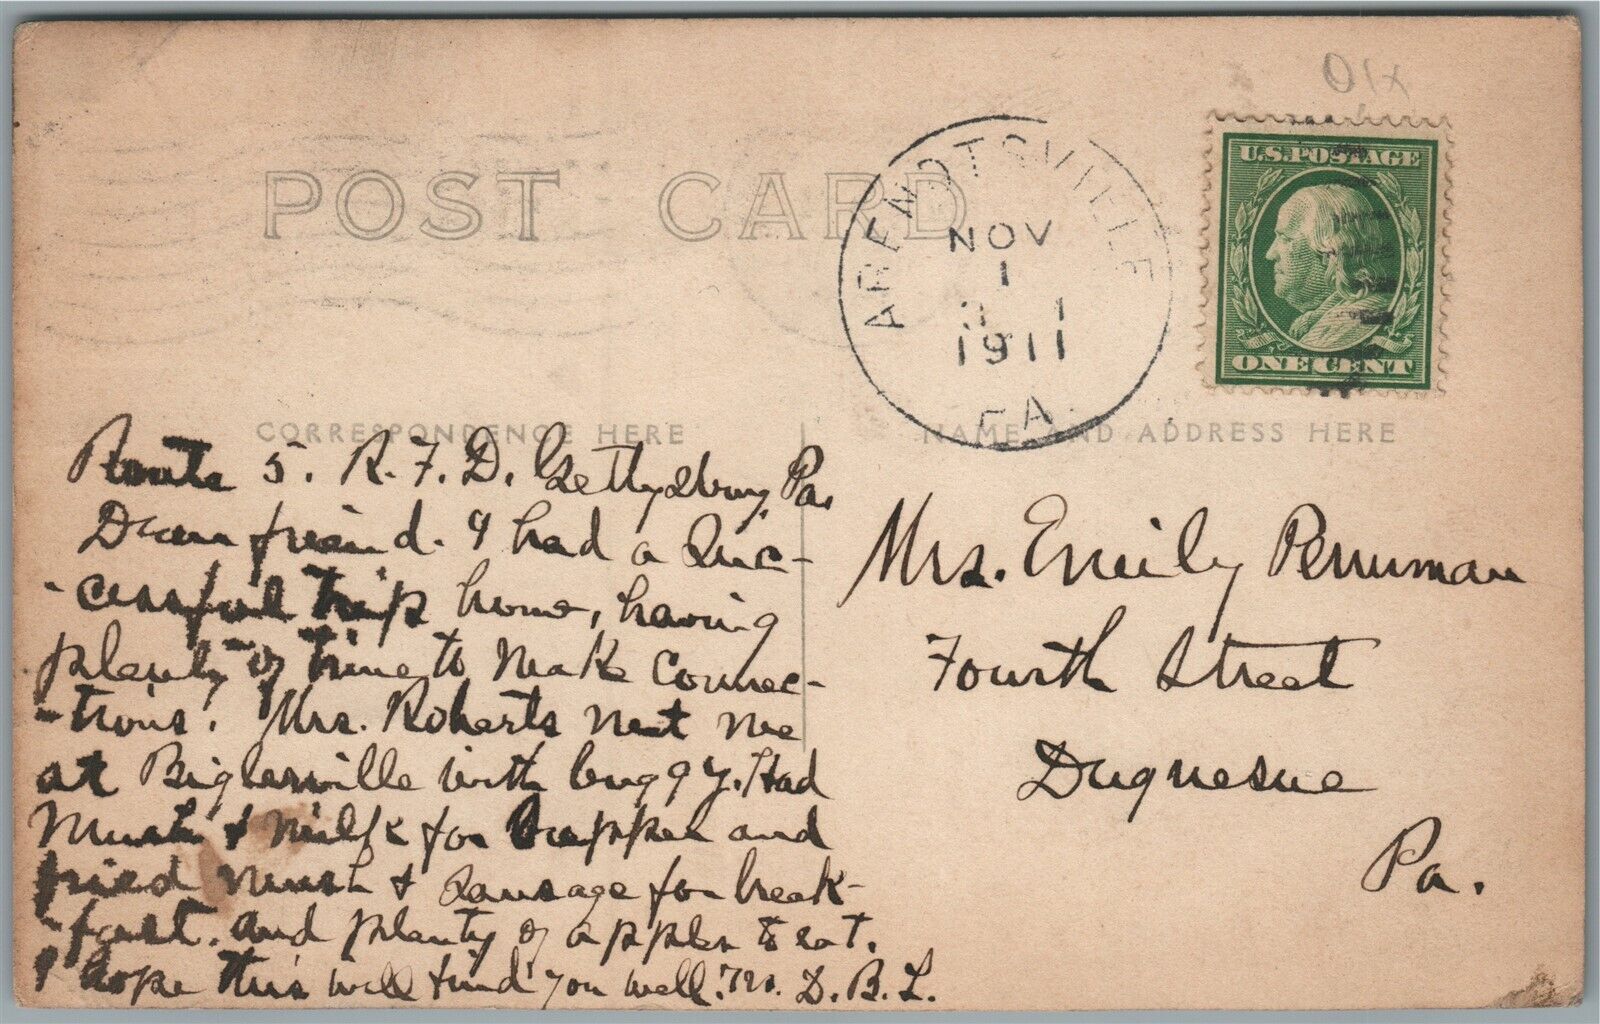 X10
POST CARD
ARENDTSVILLE
NOV
1
1911
PA.
U.S. POSTAGE
ONE CENT
CORRESPONDENCE HERE
NAME AND ADDRESS HERE
Route 5. R.F.D. Gettysburg, Pa.
Dear friend. I had a suc-
-cessful trip home, having
plenty of time to make connec-
-tions. Mrs. Roberts met me
at Biglerville with buggy. Had
Mush & milk for supper and
fried mush & sausage for break-
-fast. and plenty of apples to eat.
I hope this will find you well. D. B. L.
Mrs. Emily Perruman
Fourth Street
Duquesne
Pa.